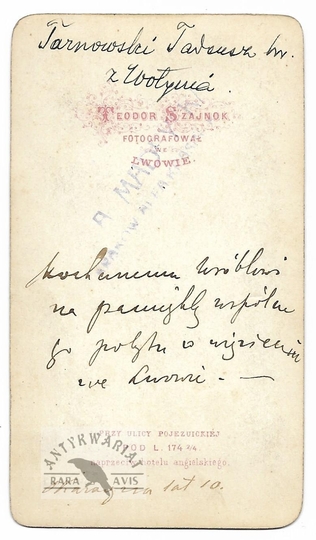 Tarnowski Tadeusz hr.
z Wołynia.
TEODOR SZAJNOK
FOTOGRAFOWAŁ
we
LWOWIE.
Kochanemu Wróblowi
na pamiątkę wspólne
go pobytu w więzieniu
we Lwowie. —
PRZY ULICY POJEZUICKIEJ
POD L. 174 3/4
naprzeciw hotelu angielskiego.
ANTYKWARIAT
RARA AVIS
lat 10.